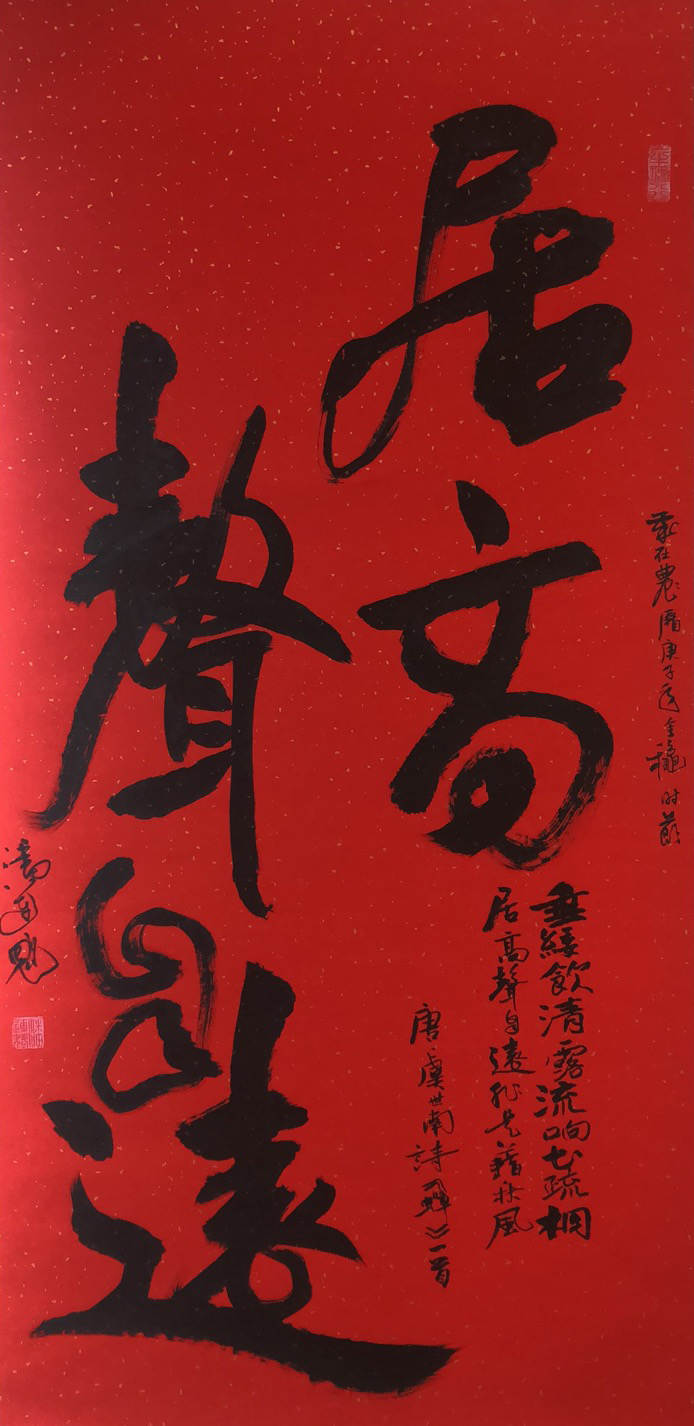 歲在農曆庚子金穐时節
居高
聲自遠
垂緌飲清露流响出疏桐
居高聲自遠非是藉秋風
唐·虞世南詩《蟬》一首